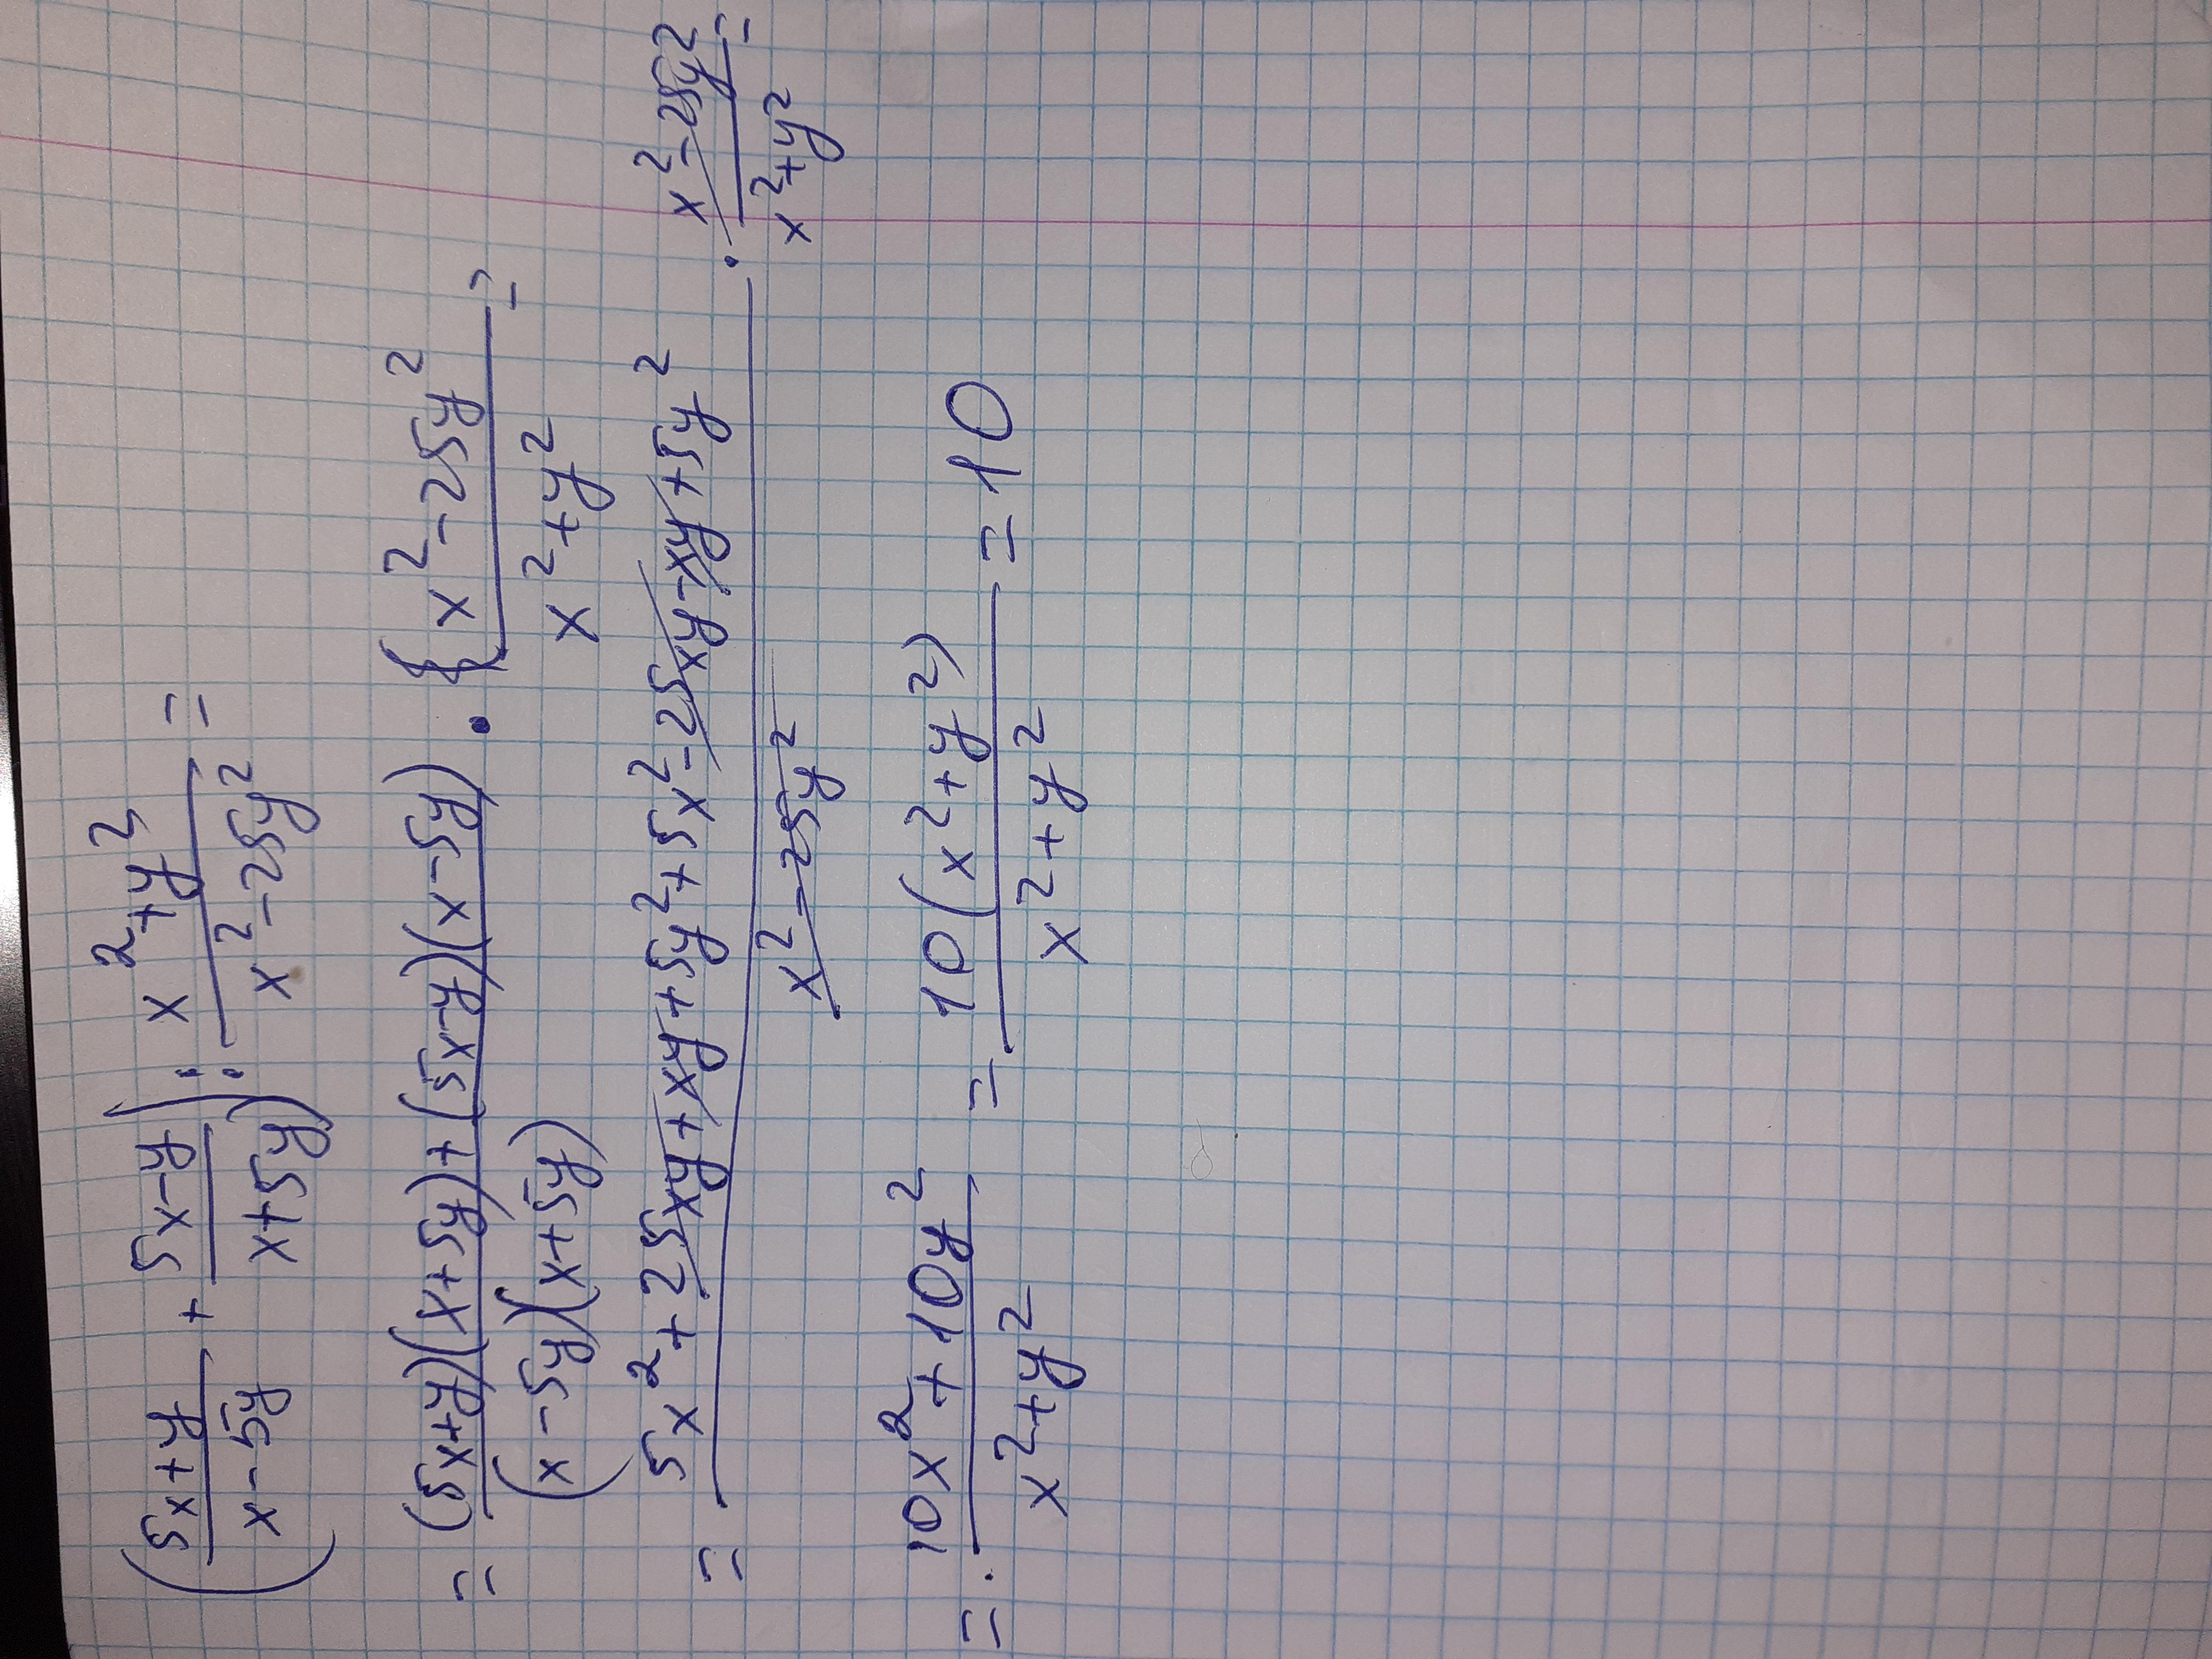 (5x+y/x-5y + 5x-y/x+5y) : x²+y²/x²-25y² =
= (5x+y)(x+5y)+(5x-y)(x-5y)/(x-5y)(x+5y) · x²-25y²/x²+y² =
= 5x²+25xy+xy+5y²+5x²-25xy-xy+5y²/x²-25y² · x²-25y²/x²+y² =
= 10x²+10y²/x²+y² = 10(x²+y²)/x²+y² = 10